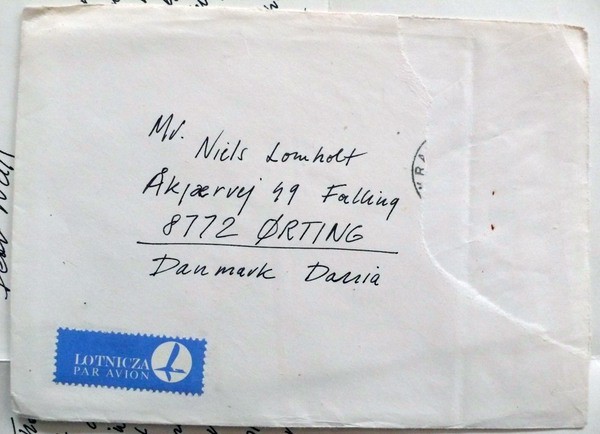 Mr.
Niels Lomholt
Åkjærvej 49 Falling
8772 ØRTING
Danmark Dania
LOTNICZA
PAR AVION